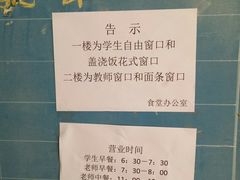 告 示
一楼为学生自由窗口和
盖浇饭花式窗口
二楼为教师窗口和面条窗口
食堂办公室
营业时间
学生早餐：6：30－7：30
老师早餐：7：30－8：00
老师中餐：11：